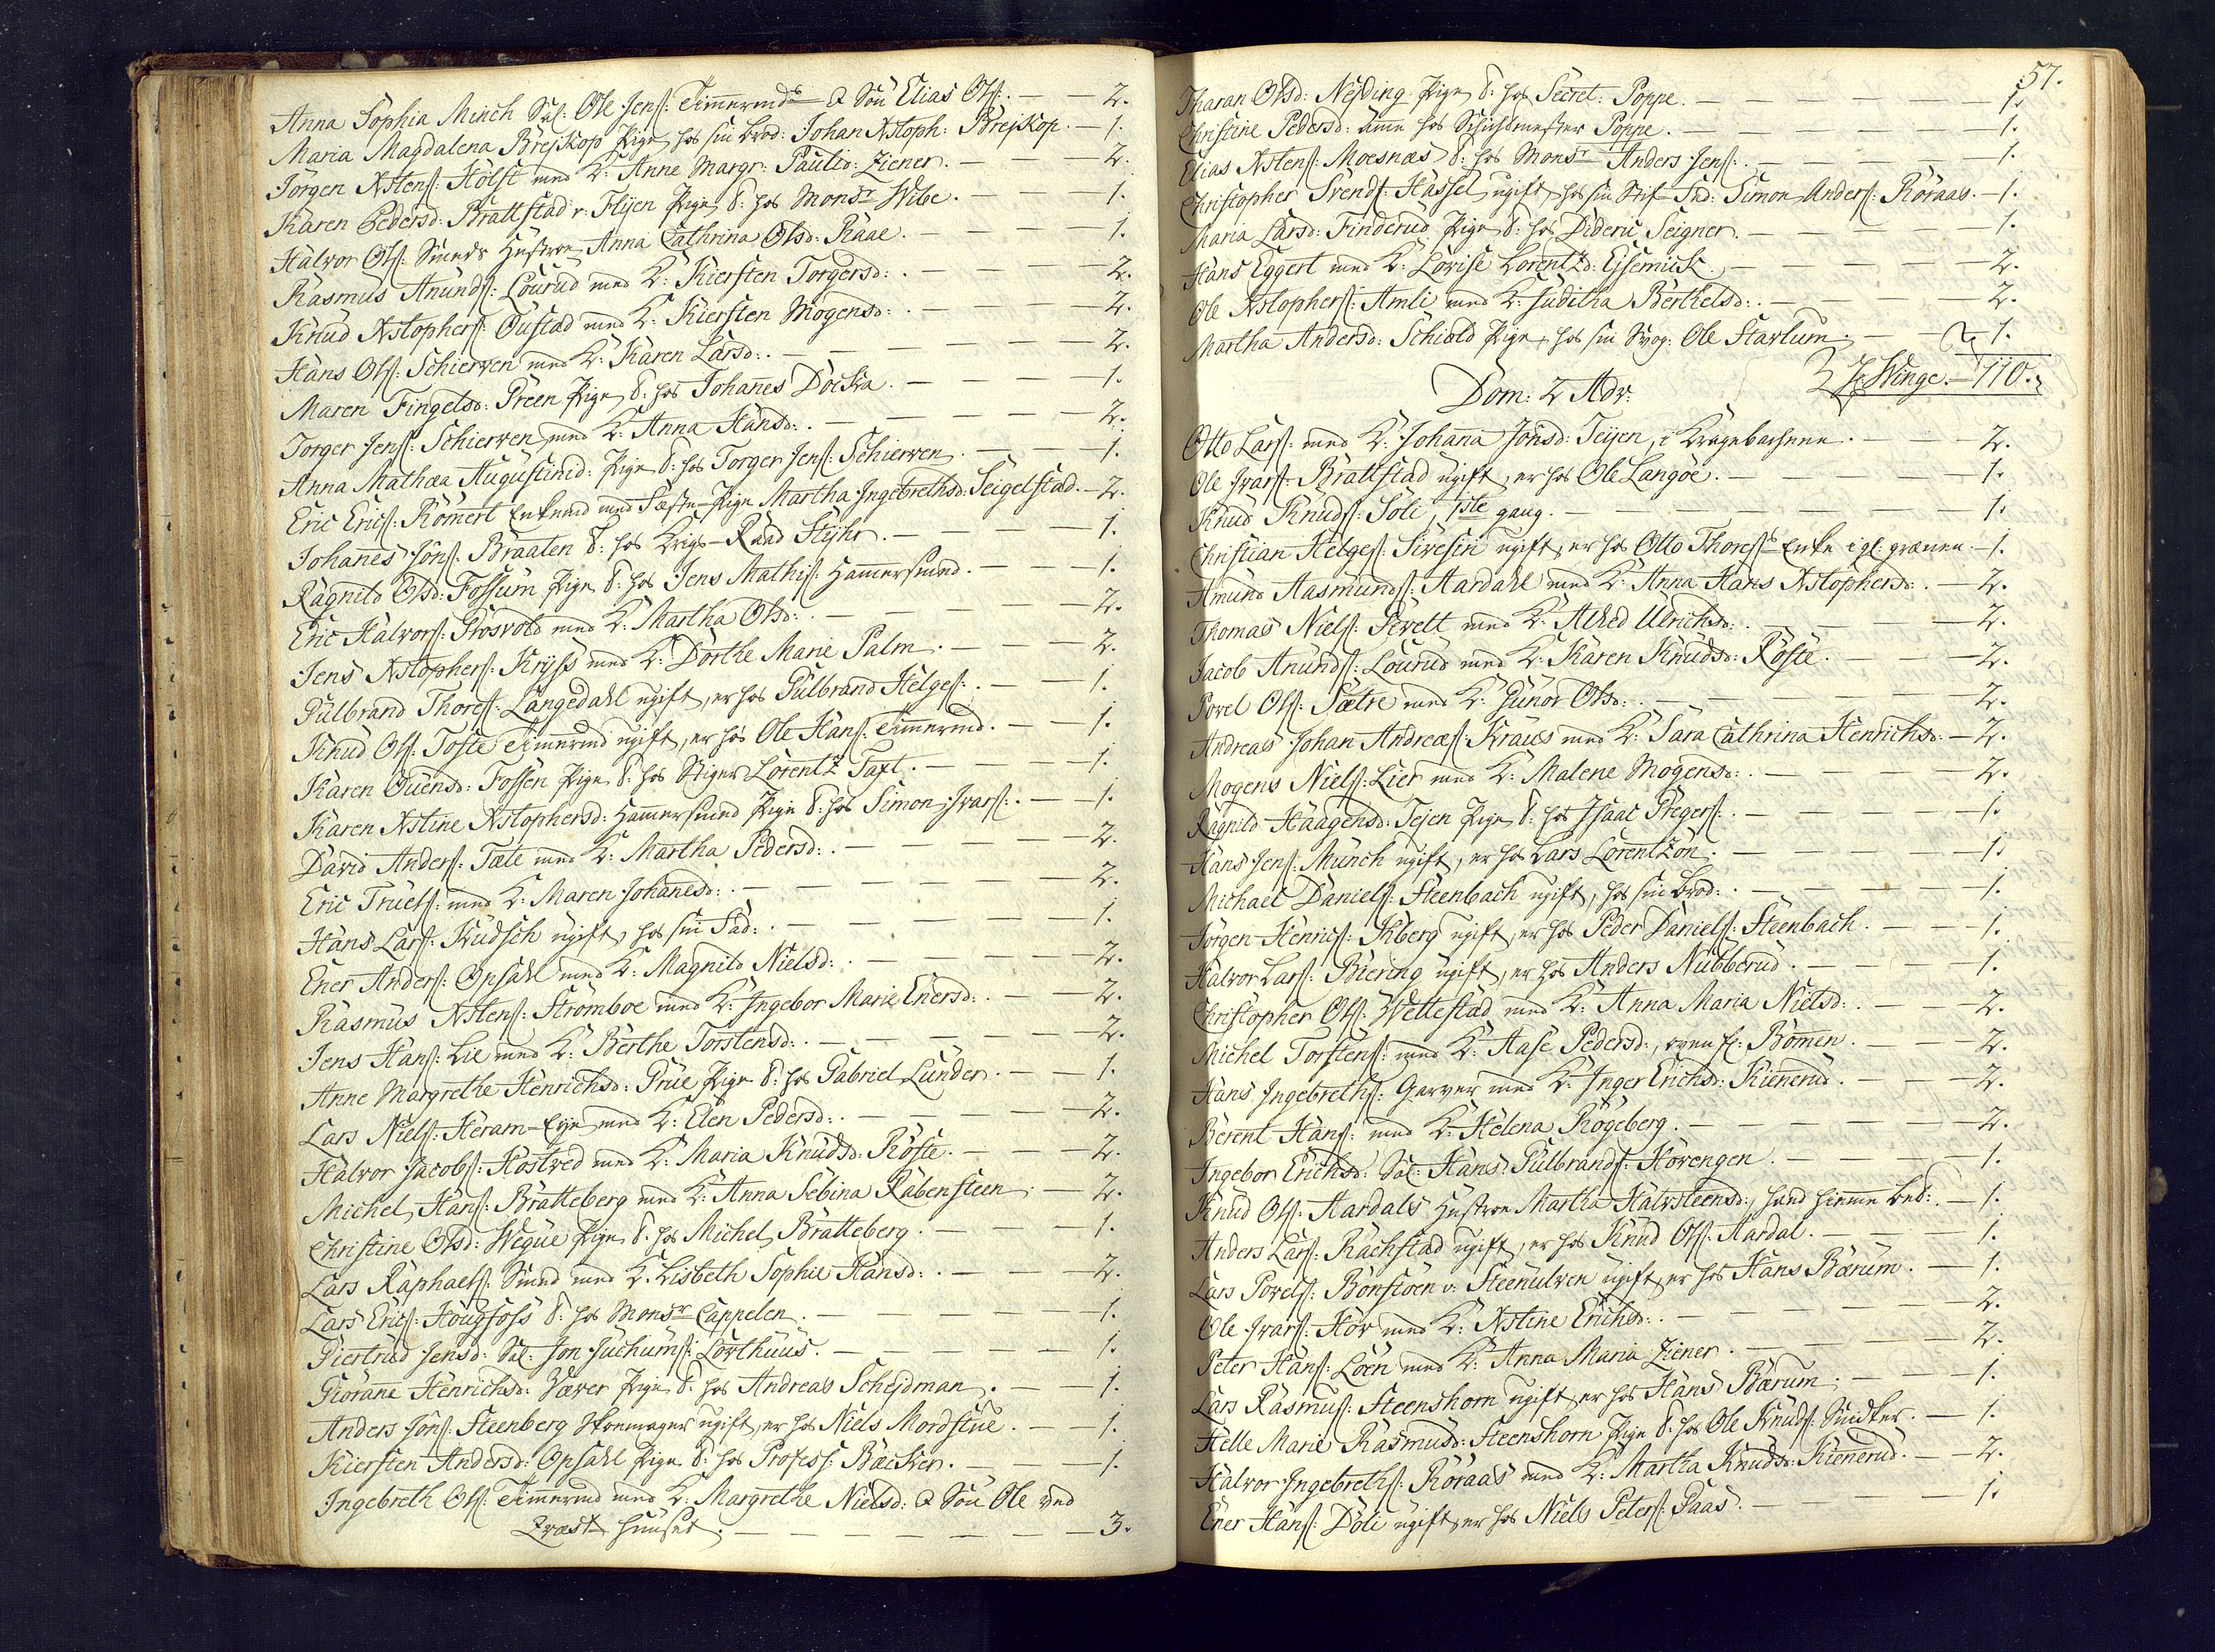 Anna Sophia Minch Sal: Ole Jens: Timmermds & Søn Elias Ols: — — 2.
Maria Magdalena Brejskop Pige, hos sin brod: Johan Xstoph: Brejskop. — 1.
Jörgen Xstens: Holst med K: Anne Margr: Paulid: Ziener. — — 2.
Karen Pedersd: Brattstad v: Flijen Pige T: hos Monsr Wibe. — — 1.
Halvor Ols: Smeds Hustroe Anna Cathrina Olsd: Raae. — — 1.
Rasmus Anunds: Lourud med K: Kiersten Torgersd: . — — 2.
Knud Xstophers: Oustad med K: Kiersten Mogensd: . — — 2.
Hans Ols: Schierven med K: Karen Larsd: . — — 2.
Maren Fingelsd: Preen Pige T: hos Johanes Döcka. — — 1.
Torger Jens: Schierven med K: Anna Hansd: . — — 2.
Anna Mathæa Augustinid: Pige T: hos Torger Jens: Schierven. — — 1.
Eric Erics: Römert Enkemd med Fæste-Pige Martha Ingebrethsd: Teigelstad. — 2.
Johanes Jöns: Braaten T: hos Krigs-Raad Heyhr. — — 1.
Ragnild Olsd: Fossum Pige T: hos Jens Mathis: Hammersmed. — — 1.
Eric Halvors: Prosvold med K: Martha Olsd: . — — 2.
Jens Xstophers: Kryss med K: Dorthe Marie Palm. — — 2.
Gulbrand Thores: Langedahl ugift, er hos Gulbrand Helges: . — — 1.
Knud Ols: Tofte Timmermd ugift, er hos Ole Hans: Timmermd. — — 1.
Karen Ouensd: Fossen Pige T: hos Stiger Lorentz Taxt. — — 1.
Karen Xstine Xstophersd: Hammersmed Pige T: hos Simon Ivars: . — — 1.
David Anders: Tæte med K: Martha Pedersd: . — — 2.
Eric Truels: med K: Maren Johanesd: . — — 2.
Hans Lars: Kudsch ugift, hos sin Fad: . — — 1.
Ener Anders: Opsahl med K: Magnild Nielsd: . — — 2.
Rasmus Xstens: Stromboe med K: Ingebor Marie Enersd: . — — 2.
Jens Hans: Lie med K: Berthe Torstensd: . — — 2.
Anne Margrethe Henrichsd: Grue Pige T: hos Gabriel Lunder. — — 1.
Lars Niels: Heram-Eye med K: Elen Pedersd: . — — 2.
Halvor Jacobs: Hostved med K: Maria Knudsd: Röste. — — 2.
Michel Hans: Bratteberg med K: Anna Sebina Rabensteen. — 2.
Christine Olsd: Wegüe Pige T: hos Michel Bratteberg. — — 1.
Lars Raphaels: Smed med K: Lisbeth Sophie Hansd: . — — 2.
Lars Erics: Hougfoss T: hos Monsr Cappelen. — — 1.
Giertrud Jensd: Sal: Jon Juchums: Lorthuus. — — 1.
Giörane Henrichsd: Væver Pige T: hos Andreas Schejdman. — 1.
Anders Jöns: Steenberg Skoemager ugift, er hos Niels Mordstue. — — 1.
Kiersten Andersd: Opsahl Pige T: hos Profess: Bæcker. — — 1.
Ingebreth Ols: Timmermd med K: Margrethe Nielsd: & Søn Ole ved
Præste Huuset. — — 3.
57.
Tharan Olsd: Nesding Pige T: hos Secret: Poppe. — — 1.
Christine Pedersd: Amme hos Schichtmester Poppe. — — 1.
Elias Xstens: Moesnæs T: hos Monsr Anders Jens: . — — 1.
Christopher Svends: Hassel ugift, hos sin Stif-Fad: Simon Anders: Röraas. — 1.
Maria Larsd: Finderud Pige T: hos Dideric Seigner. — — 1.
Hans Eggert med K: Lovise Lorentzd: Ejsemück. — — 2.
Ole Xstophers: Amli med K: Juditha Berthelsd: . — — 2.
Martha Andersd: Schiold Pige, hos sin Svog: Ole Harlum. — 1.
H: Winge. — 110.
Dom: 2 Adv:
Otto Lars: med K: Johana Jonsd: Teijen, i Kragebachene. — — 2.
Ole Ivars: Brattstad ugift, er hos Ole Langöe. — — 1.
Knud Knuds: Soli, 1ste gang. — — 1.
Christian Helges: Sivesin ugift, er hos Otto Thores: Enke i gl: grænen. — 1.
Amund Aasmunds: Aardahl med K: Anna Hans Xstophersd: . — 2.
Thomas Niels: Sevett med K: Alhed Ulrichsd: . — — 2.
Jacob Anunds: Lourud med K: Karen Knudsd: Röste. — — 2.
Povel Ols: Sætre med K: Gunor Olsd: . — — 2.
Andreas Johan Andreæs: Kraus med K: Sara Cathrina Henrichsd: — 2.
Mogens Niels: Lier med K: Malene Mogensd: . — — 2.
Ragnild Haagensd: Tejen Pige T: hos Isaac Gregers: . — — 1.
Hans Jens: Münch ugift, er hos Lars Lorentzon. — — 1.
Michael Daniels: Steenbach ugift, hos sin brod: . — — 1.
Jörgen Henrics: Kberg ugift, er hos Peder Daniels: Steenbach. — — 1.
Halvor Lars: Biering ugift, er hos Anders Nubberud. — — 1.
Christopher Ols: Wettestad med K: Anna Maria Nielsd: . — — 2.
Michel Torstens: med K: Aase Pedersd:, oven f: Bommen. — — 2.
Hans Ingebreths: Garver med K: Inger Erichsd: Kiennerud. — — 2.
Berent Hans: med K: Helena Rögeberg. — — 2.
Ingebor Erichsd: Sal: Hans Gulbrands: Hovengen. — — 1.
Knud Ols: Aardals Hustroe Martha Halvsteensd:, hand hiemme bed: . — 1.
Anders Lars: Rachstad ugift, er hos Knud Ols: Aardal. — — 1.
Lars Povels: Bonstöen v: Steenulven ugift, er hos Hans Bærum. — 1.
Ole Ivars: Hov med K: Xstine Erichsd: . — — 2.
Peter Hans: Löen med K: Anna Maria Ziener. — — 2.
Lars Rasmus: Steenshorn ugift, er hos Hans Bærum. — — 1.
Helle Marie Rasmusd: Steenshorn Pige T: hos Ole Knuds: Snidker. — 1.
Halvor Ingebreths: Röraas med K: Martha Knudsd: Kiennerud. — 2.
Ener Hans: Döli ugift, er hos Niels Peters: Paas. — — 1.